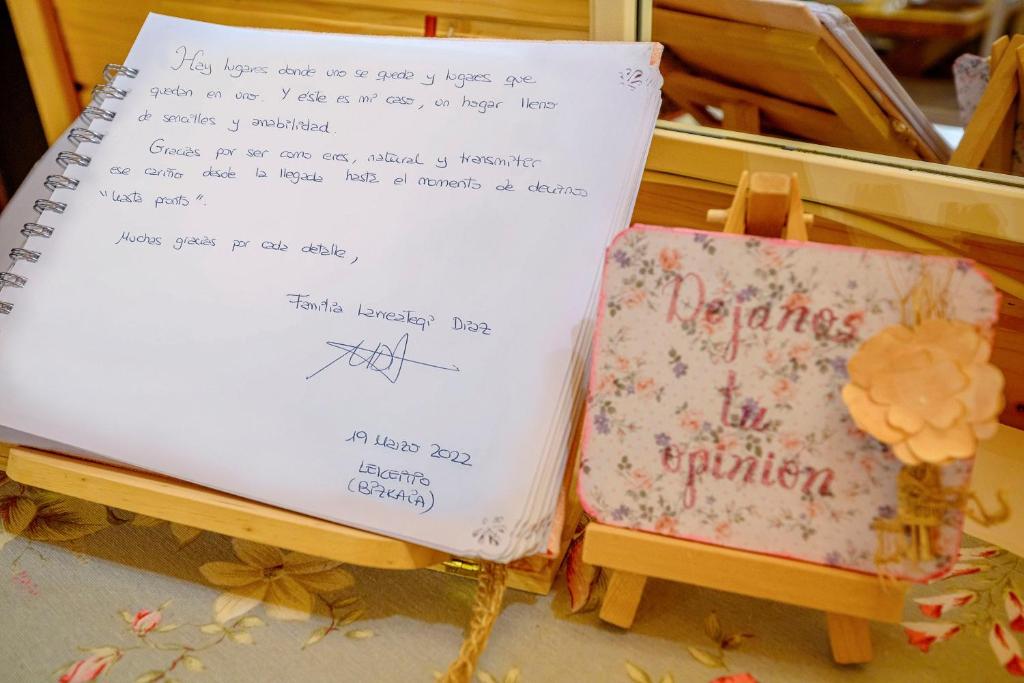 Hay lugares donde uno se queda y lugares que
quedan en uno. Y éste es mi caso, un hogar lleno
de sencilles y amabilidad.
Gracias por ser como eres, natural y transmiter
ese cariño desde la llegada hasta el momento de decirnos
"hasta pronto".
Muchas gracias por cada detalle,
Familia Larreategi Diaz
19 Marzo 2022
(BIZKAIA)
Dejanos
tu
opinion